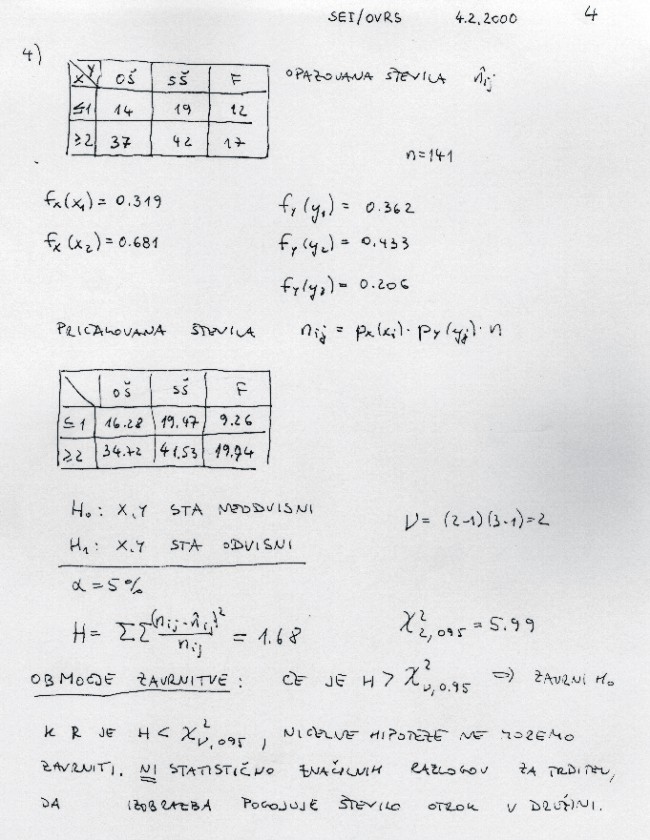 SEI/OVRS 4.2.2000 4
4)
X Y OŠ SŠ F
≤1 14 19 12
≥2 37 42 17
OPAZOVANA ŠTEVILA n̂ij
n=141
fx(x1) = 0.319 fy(y1) = 0.362
fx(x2) = 0.681 fy(y2) = 0.433
fy(y3) = 0.206
PRIČAKOVANA ŠTEVILA nij = px(xi) · py(yj) · n
OŠ SŠ F
≤1 16.28 19.47 9.26
≥2 34.72 41.53 19.74
H0: X,Y STA NEODVISNI
H1: X,Y STA ODVISNI
ν = (2-1)(3-1)=2
α = 5%
H = ΣΣ (nij - n̂ij)² / nij = 1.68 χ²2,095 = 5.99
OBMOČJE ZAVRNITVE: ČE JE H > χ²ν,0.95 ⇒ ZAVRNI H0
KER JE H < χ²ν,095, NIČELNE HIPOTEZE NE MOREMO
ZAVRNITI. NI STATISTIČNO ZNAČILNIH RAZLOGOV ZA TRDITEV,
DA IZOBRAZBA POGOJUJE ŠTEVILO OTROK V DRUŽINI.